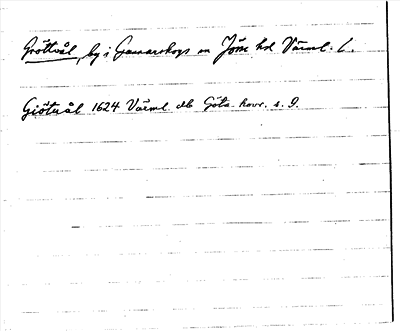 Gröttvål, by i Gunnarskogs sn Jösse hd Värml. l.
Giötuål 1624 Värml. db Göta hovr. s. 9.